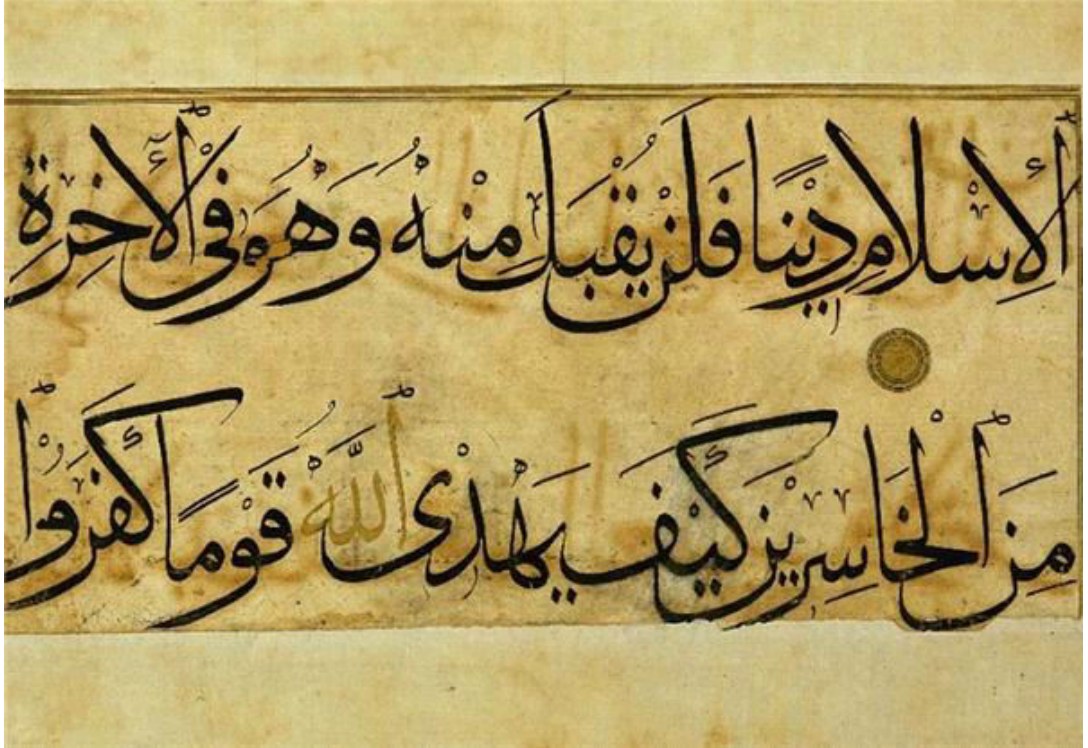 ٱلْإِسْلَامِ دِيْنًا فَلَنْ يُقْبَلَ مِنْهُ وَهُوَ فِي ٱلْآخِرَةِ
مِنَ ٱلْخَاسِرِيْنَ كَيْفَ يَهْدِى ٱللَّهُ قَوْمًا كَفَرُوْا